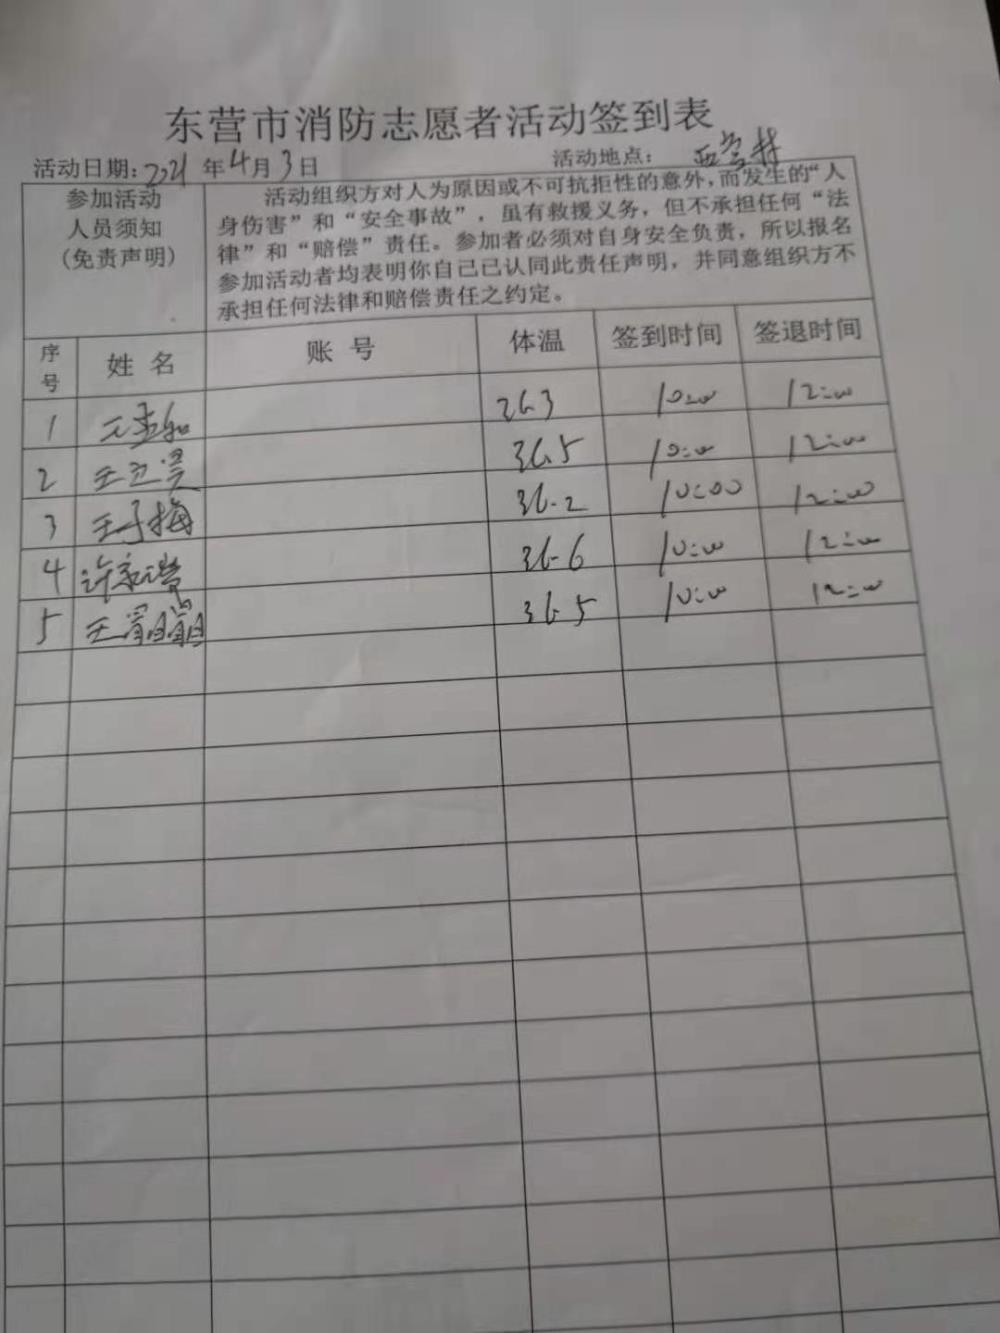 东营市消防志愿者活动签到表
活动日期:2021年4月3日 活动地点:
参加活动
人员须知
(免责声明)
活动组织方对人为原因或不可抗拒性的意外,而发生的“人
身伤害”和“安全事故”,虽有救援义务,但不承担任何“法
律”和“赔偿”责任。参加者必须对自身安全负责,所以报名
参加活动者均表明你自己已认同此责任声明,并同意组织方不
承担任何法律和赔偿责任之约定。
序号 姓名 账号 体温 签到时间 签退时间
1 36.3 10:00 12:00
2 王立昊 36.5 10:00 12:00
3 王子梅 36.2 10:00 12:00
4 许家 36.6 10:00 12:00
5 王 36.5 10:00 12:00